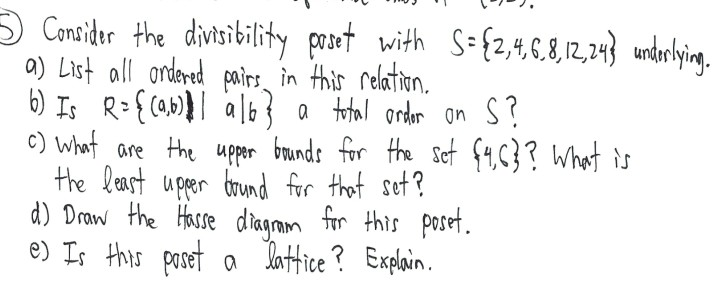 5) Consider the divisibility poset with S={2,4,6,8,12,24} underlying.
a) List all ordered pairs in this relation.
b) Is R={(a,b)| a|b} a total order on S?
c) What are the upper bounds for the set {4,6}? What is
the least upper bound for that set?
d) Draw the Hasse diagram for this poset.
e) Is this poset a lattice? Explain.